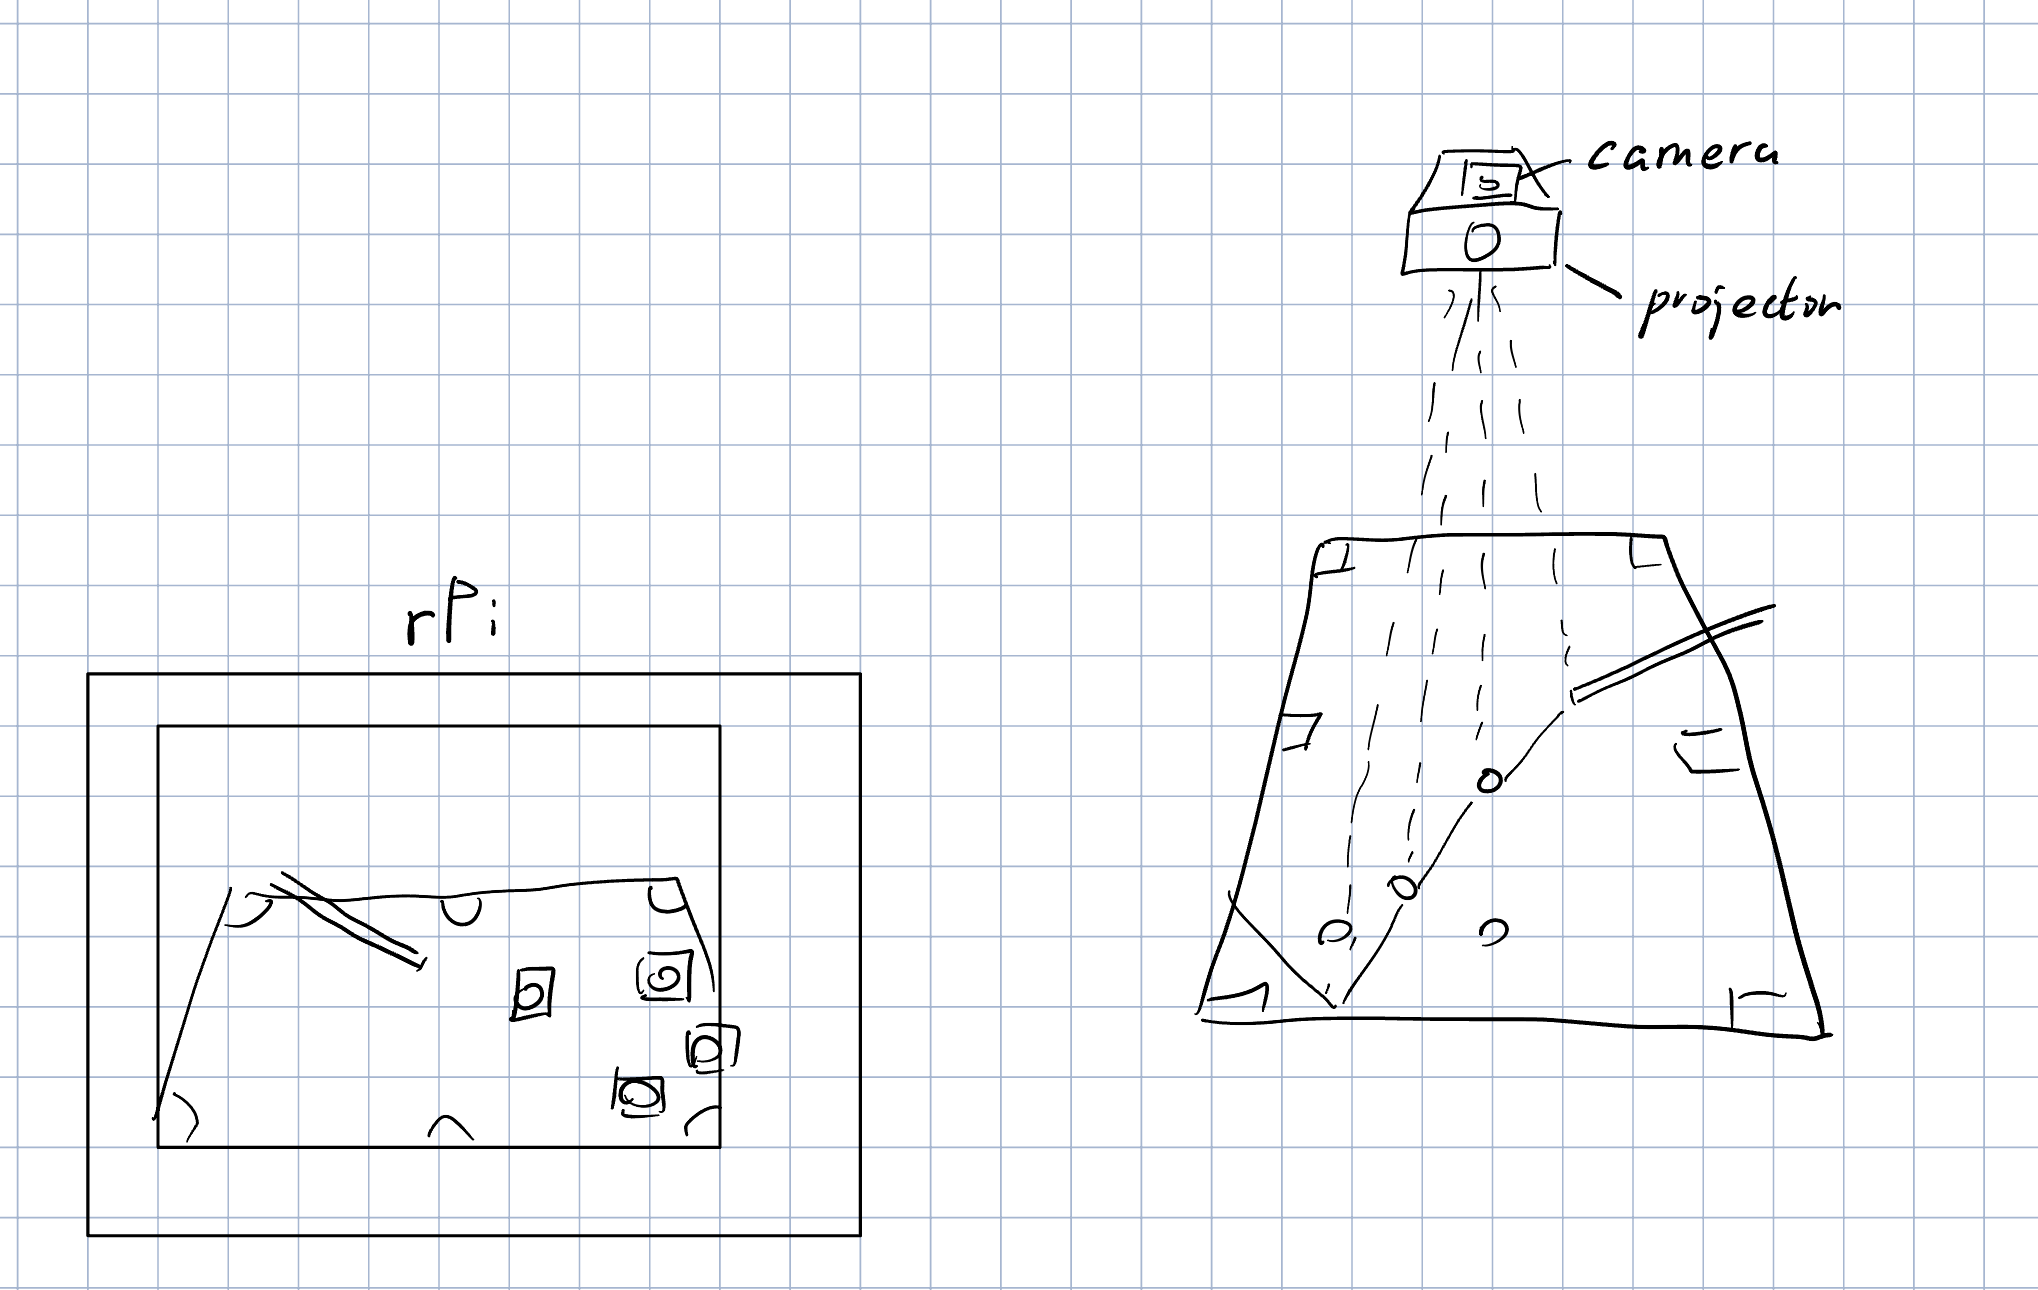 camera
projector
rPi